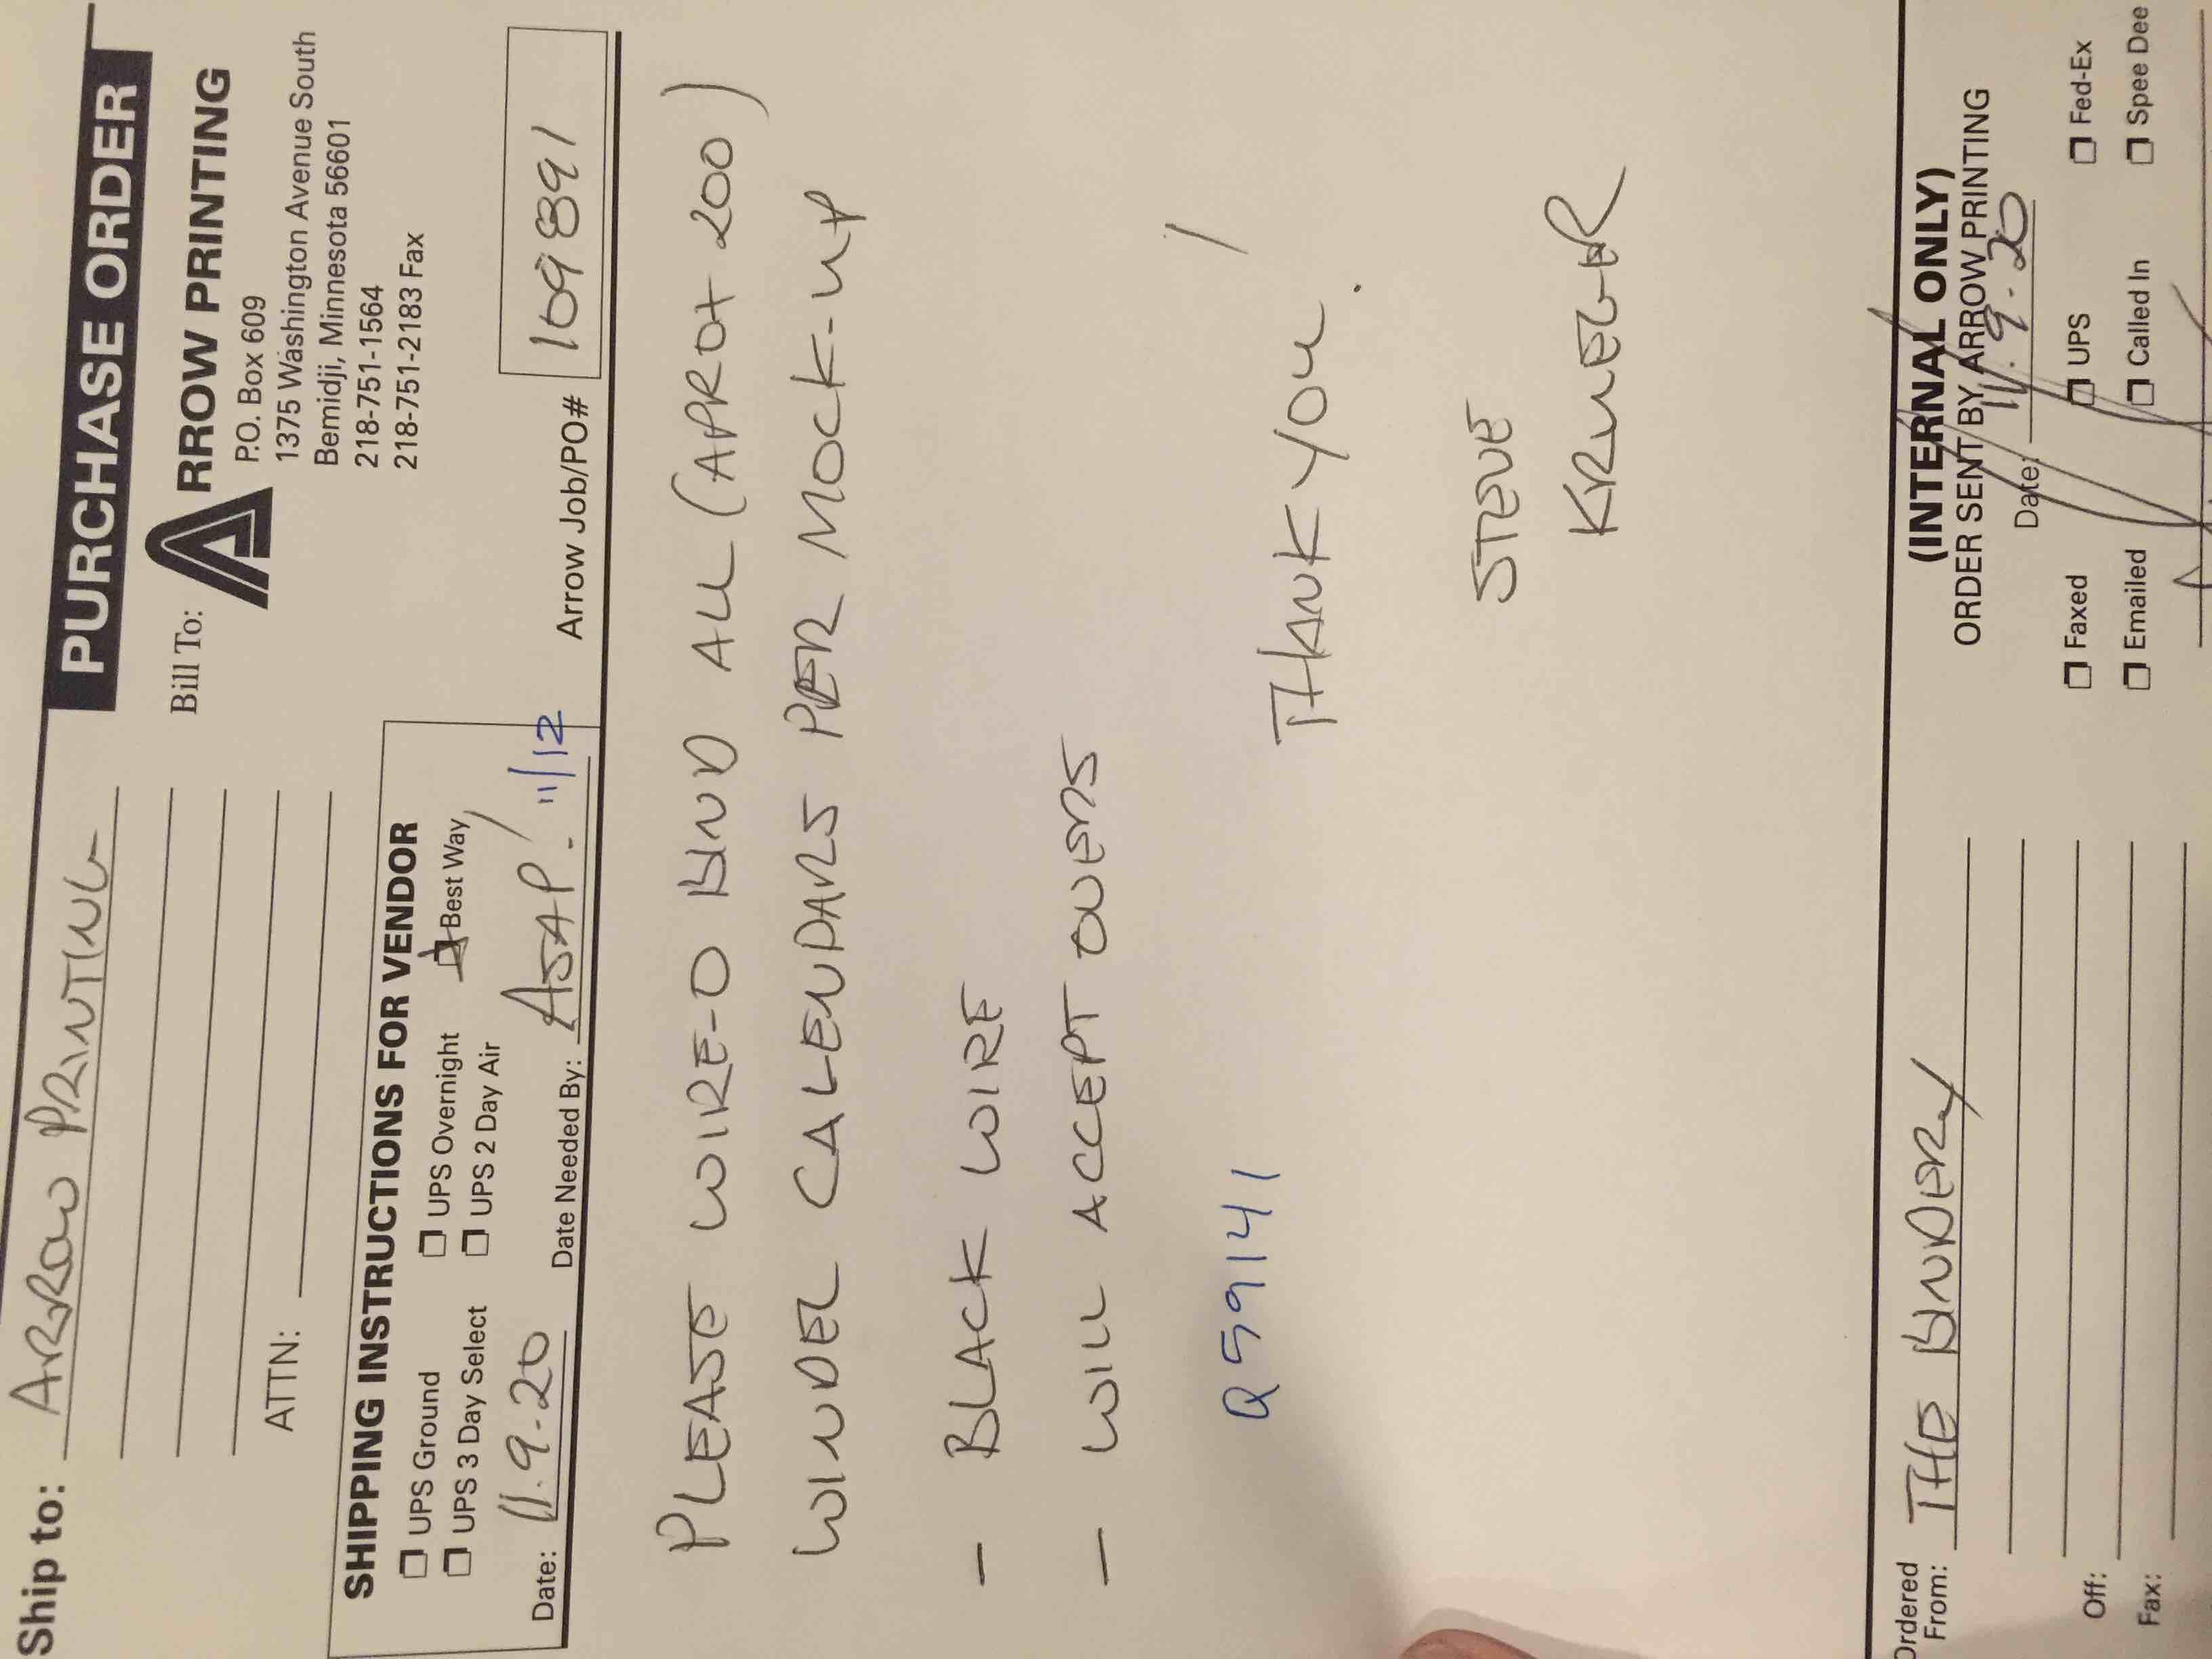 Ship to: ARROW PRINTING
PURCHASE ORDER
Bill To:
ARROW PRINTING
P.O. Box 609
1375 Washington Avenue South
Bemidji, Minnesota 56601
218-751-1564
218-751-2183 Fax
ATTN:
SHIPPING INSTRUCTIONS FOR VENDOR
UPS Ground UPS Overnight Best Way
UPS 3 Day Select UPS 2 Day Air
Date: 11.9-20 Date Needed By: ASAP! 11/12
Arrow Job/PO# 109891
PLEASE WIRE-O BIND ALL (APROX 200)
WINDEL CALENDARS PER MOCK-UP
- BLACK WIRE
- WILL ACCEPT OVERS
Q59141
THANK YOU!
STEVE
KRUEGER
Ordered
From: THE BINDERY
Off:
Fax:
(INTERNAL ONLY)
ORDER SENT BY ARROW PRINTING
Date: 11.9-20
Faxed UPS Fed-Ex
Emailed Called In Spee Dee